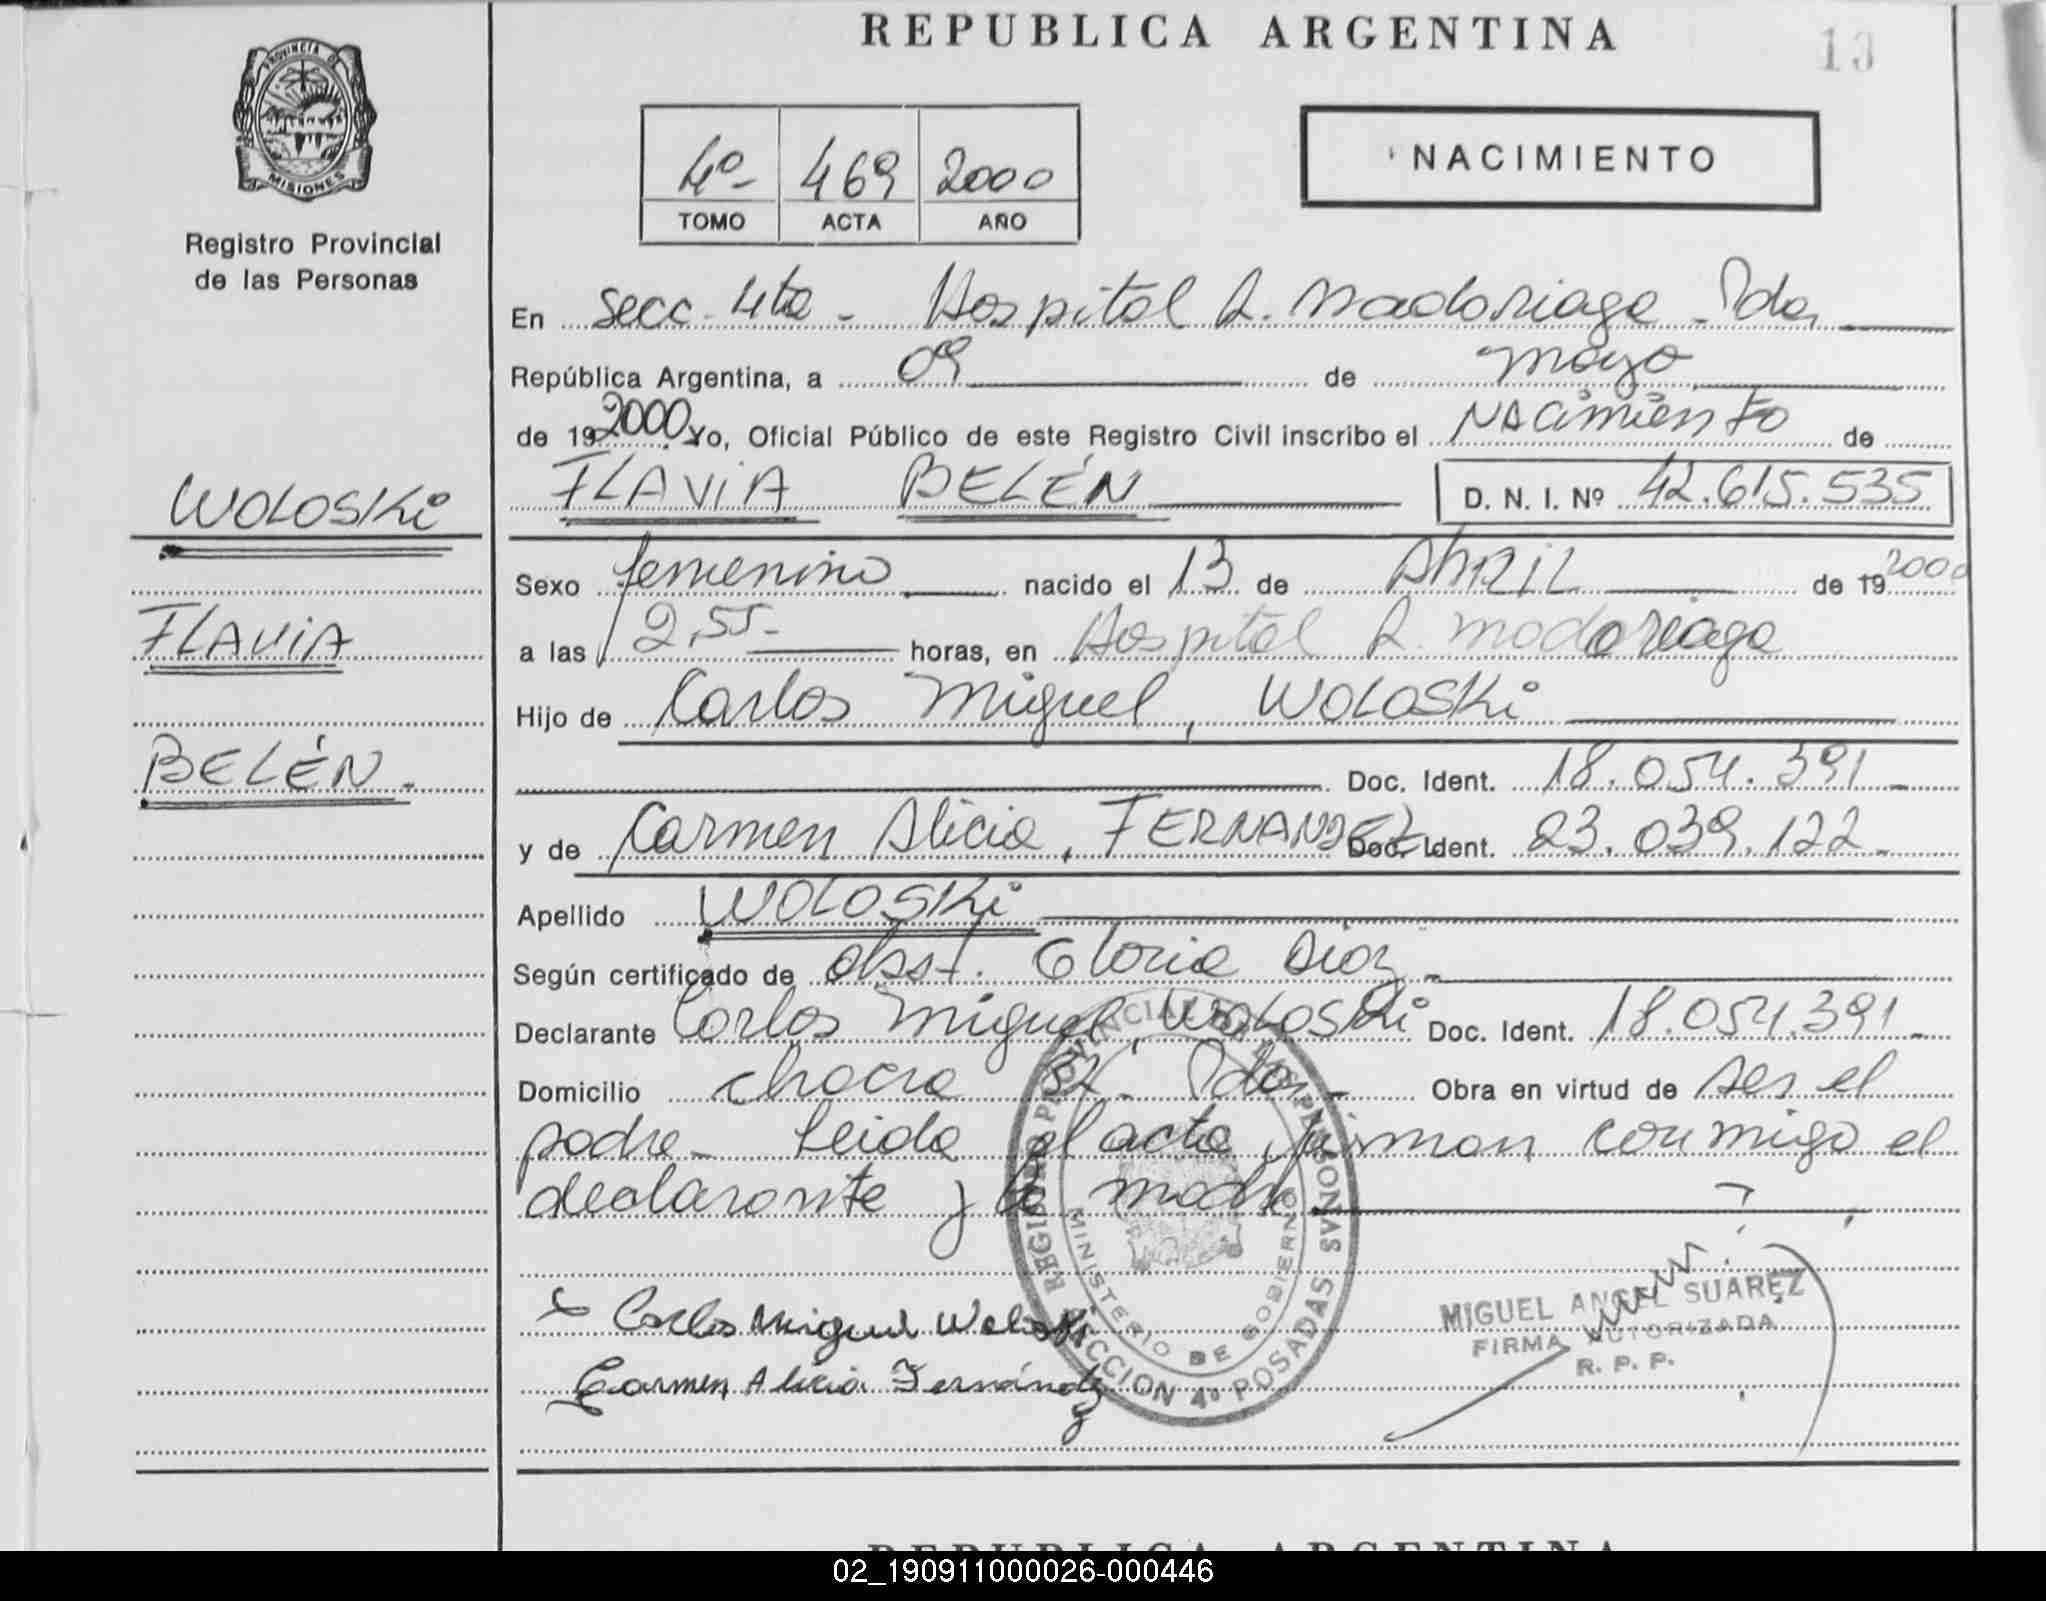 REPUBLICA ARGENTINA
13
PROVINCIA DE
MISIONES
Registro Provincial
de las Personas
4º- 469 2000
TOMO ACTA AÑO
NACIMIENTO
En Secc. 4ta - Hospital R. Madariaga - Pdas
República Argentina, a 09 de mayo
de 19 2000 Yo, Oficial Público de este Registro Civil inscribo el Nacimiento de
FLAVIA BELÉN D. N. I. Nº 42.615.535
WOLOSKi
FLAViA
BELÉN.
Sexo femenino nacido el 13 de AbRIL de 19 2000
a las 2,55- horas, en Hospital R. Madariaga
Hijo de Carlos Miguel, WOLOSKi
Doc. Ident. 18.054.391-
y de Carmen Alicia, FERNANDEZ Doc. Ident. 23.039.122-
Apellido WOLOSKi
Según certificado de obst. Gloria Diaz-
Declarante Carlos Miguel, WOLOSKi Doc. Ident. 18.054.391-
Domicilio chacra 32 - Pdas- Obra en virtud de ser el
padre- Leida el acta firman conmigo el
declarante y la madre
REGISTRO PROVINCIAL DE LAS PERSONAS
MINISTERIO DE GOBIERNO
SECCION 4º POSADAS
Carlos Miguel Woloski
Carmen Alicia Fernández
MIGUEL ANGEL SUAREZ
FIRMA AUTORIZADA
R. P. P.
REPUBLICA ARGENTINA
02_190911000026-000446